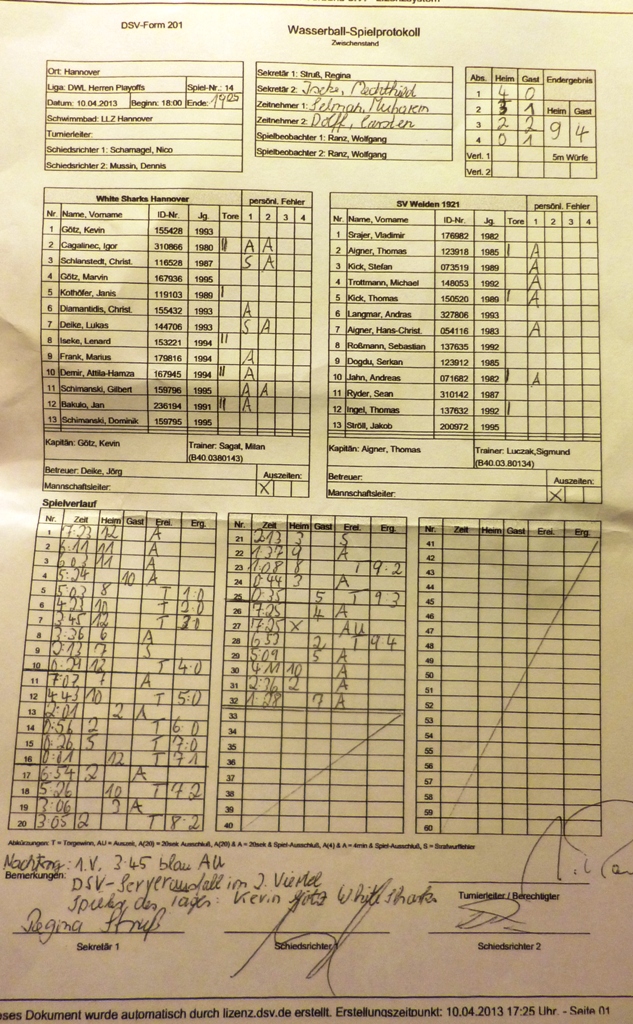 DSV-Form 201
Wasserball-Spielprotokoll
Zwischenstand
Ort: Hannover
Liga: DWL Herren Playoffs Spiel-Nr.: 14
Datum: 10.04.2013 Beginn: 18:00 Ende: 1905
Schwimmbad: LLZ Hannover
Turnierleiter:
Schiedsrichter 1: Scharnagel, Nico
Schiedsrichter 2: Mussin, Dennis
Sekretär 1: Struß, Regina
Sekretär 2: Mechthild
Zeitnehmer 1: Selman, Muharem
Zeitnehmer 2: Dolff, Carsten
Spielbeobachter 1: Ranz, Wolfgang
Spielbeobachter 2: Ranz, Wolfgang
Abs. Heim Gast Endergebnis
1 4 0
2 3 1 Heim Gast
3 2 2 9 4
4 0 1
Verl. 1 5m Würfe
Verl. 2
White Sharks Hannover persönl. Fehler
Nr. Name, Vorname ID-Nr. Jg. Tore 1 2 3 4
1 Götz, Kevin 155428 1993
2 Cagalinec, Igor 310866 1980 || A A
3 Schlanstedt, Christ. 116528 1987 S A
4 Götz, Marvin 167936 1995
5 Kothöfer, Janis 119103 1989 |
6 Diamantidis, Christ. 155432 1993 A
7 Deike, Lukas 144706 1993 S A
8 Iseke, Lenard 153221 1994 ||
9 Frank, Marius 179816 1994 A
10 Demir, Attila-Hamza 167945 1994 || A
11 Schimanski, Gilbert 159796 1995 A A
12 Bakulo, Jan 236194 1991 || A
13 Schimanski, Dominik 159795 1995
Kapitän: Götz, Kevin Trainer: Sagat, Milan
(B40.0380143)
Betreuer: Deike, Jörg Auszeiten:
Mannschaftsleiter: X
SV Weiden 1921 persönl. Fehler
Nr. Name, Vorname ID-Nr. Jg. Tore 1 2 3 4
1 Srajer, Vladimir 176982 1982
2 Aigner, Thomas 123918 1985 | A
3 Kick, Stefan 073519 1989 A
4 Trottmann, Michael 148053 1992 A
5 Kick, Thomas 150520 1989 | A
6 Langmar, Andras 327806 1993
7 Aigner, Hans-Christ. 054116 1983 A
8 Roßmann, Sebastian 137635 1992
9 Dogdu, Serkan 123912 1985
10 Jahn, Andreas 071682 1982 | A
11 Ryder, Sean 310142 1987
12 Ingel, Thomas 137632 1992 |
13 Ströll, Jakob 200972 1995
Kapitän: Aigner, Thomas Trainer: Luczak,Sigmund
(B40.03.80134)
Betreuer: Auszeiten:
Mannschaftsleiter: X
Spielverlauf
Nr. Zeit Heim Gast Erei. Erg.
1 7:23 12 A
2 6:11 11 A
3 6:03 11 A
4 5:24 10 A
5 5:03 8 T 1:0
6 4:23 10 T 2:0
7 3:45 12 T 3:0
8 3:36 6 A
9 2:13 7 S
10 0:29 12 T 4:0
11 7:07 7 A
12 4:43 10 T 5:0
13 2:01 2 A
14 0:56 2 T 6:0
15 0:26 5 T 7:0
16 0:01 12 T 7:1
17 6:54 2 A
18 5:26 10 T 7:2
19 3:06 3 A
20 3:05 2 T 8:2
Nr. Zeit Heim Gast Erei. Erg.
21 2:13 3 S
22 1:37 9 A
23 1:08 8 T 9:2
24 0:44 3 A
25 0:35 5 T 9:3
26 7:25 4 A
27 7:25 X AU
28 6:53 2 T 9:4
29 5:09 5 A
30 4:11 10 A
31 2:26 2 A
32 1:28 7 A
33
34
35
36
37
38
39
40
Nr. Zeit Heim Gast Erei. Erg.
41
42
43
44
45
46
47
48
49
50
51
52
53
54
55
56
57
58
59
60
Abkürzungen: T = Torgewinn, AU = Auszeit, A(20) = 20sek Ausschluß, A(20) & A = 20sek & Spiel-Ausschluß, A(4) & A = 4min & Spiel-Ausschluß, S = Strafwurffehler
Nachtrag: 1.V. 3:45 blau AU
Bemerkungen: DSV-Serverausfall im 2. Viertel
Spieler des Tages: Kevin Götz White Sharks
Regina Struß
Sekretär 1
Schiedsrichter 1
Turnierleiter / Berechtigter
Schiedsrichter 2
eses Dokument wurde automatisch durch lizenz.dsv.de erstellt. Erstellungszeitpunkt: 10.04.2013 17:25 Uhr. - Seite 01